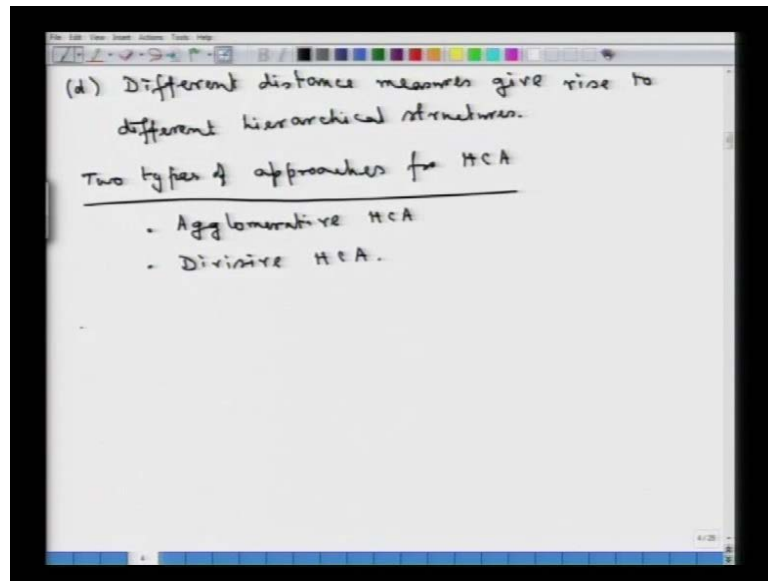 File Edit View Insert Actions Tools Help
(d) Different distance measures give rise to
different hierarchical structures.
Two types of approaches for HCA
. Agglomerative HCA
- Divisive HCA.
4/28